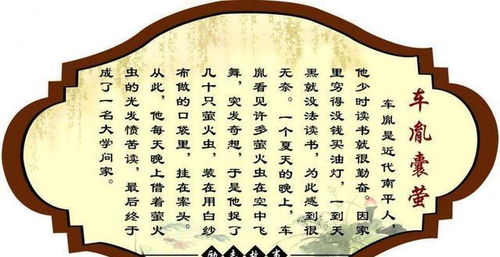 车胤囊萤
车胤是近代南平人，
他少时读书就很勤奋。因家
里穷得没钱买油灯，一到天
黑就没法读书，为此感到很
无奈。一个夏天的晚上，车
胤看见许多萤火虫在空中飞
舞，突发奇想，于是他捉了
几十只萤火虫，装在用白纱
布做的口袋里，挂在案头。
从此，他每天晚上借着萤火
虫的光发愤苦读，最后终于
成了一名大学问家。